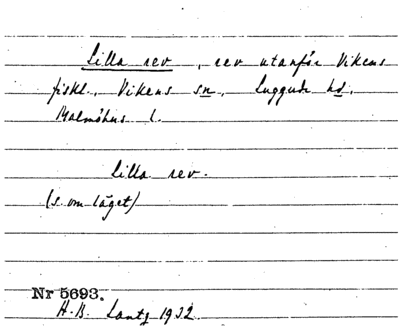 Lilla rev, rev utanför Vikens
fiskl., Vikens sn, Luggude hd,
Malmöhus l.
Lilla rev.
(s. om läget)
Nr 5693.
H. B. Lantz 1932.